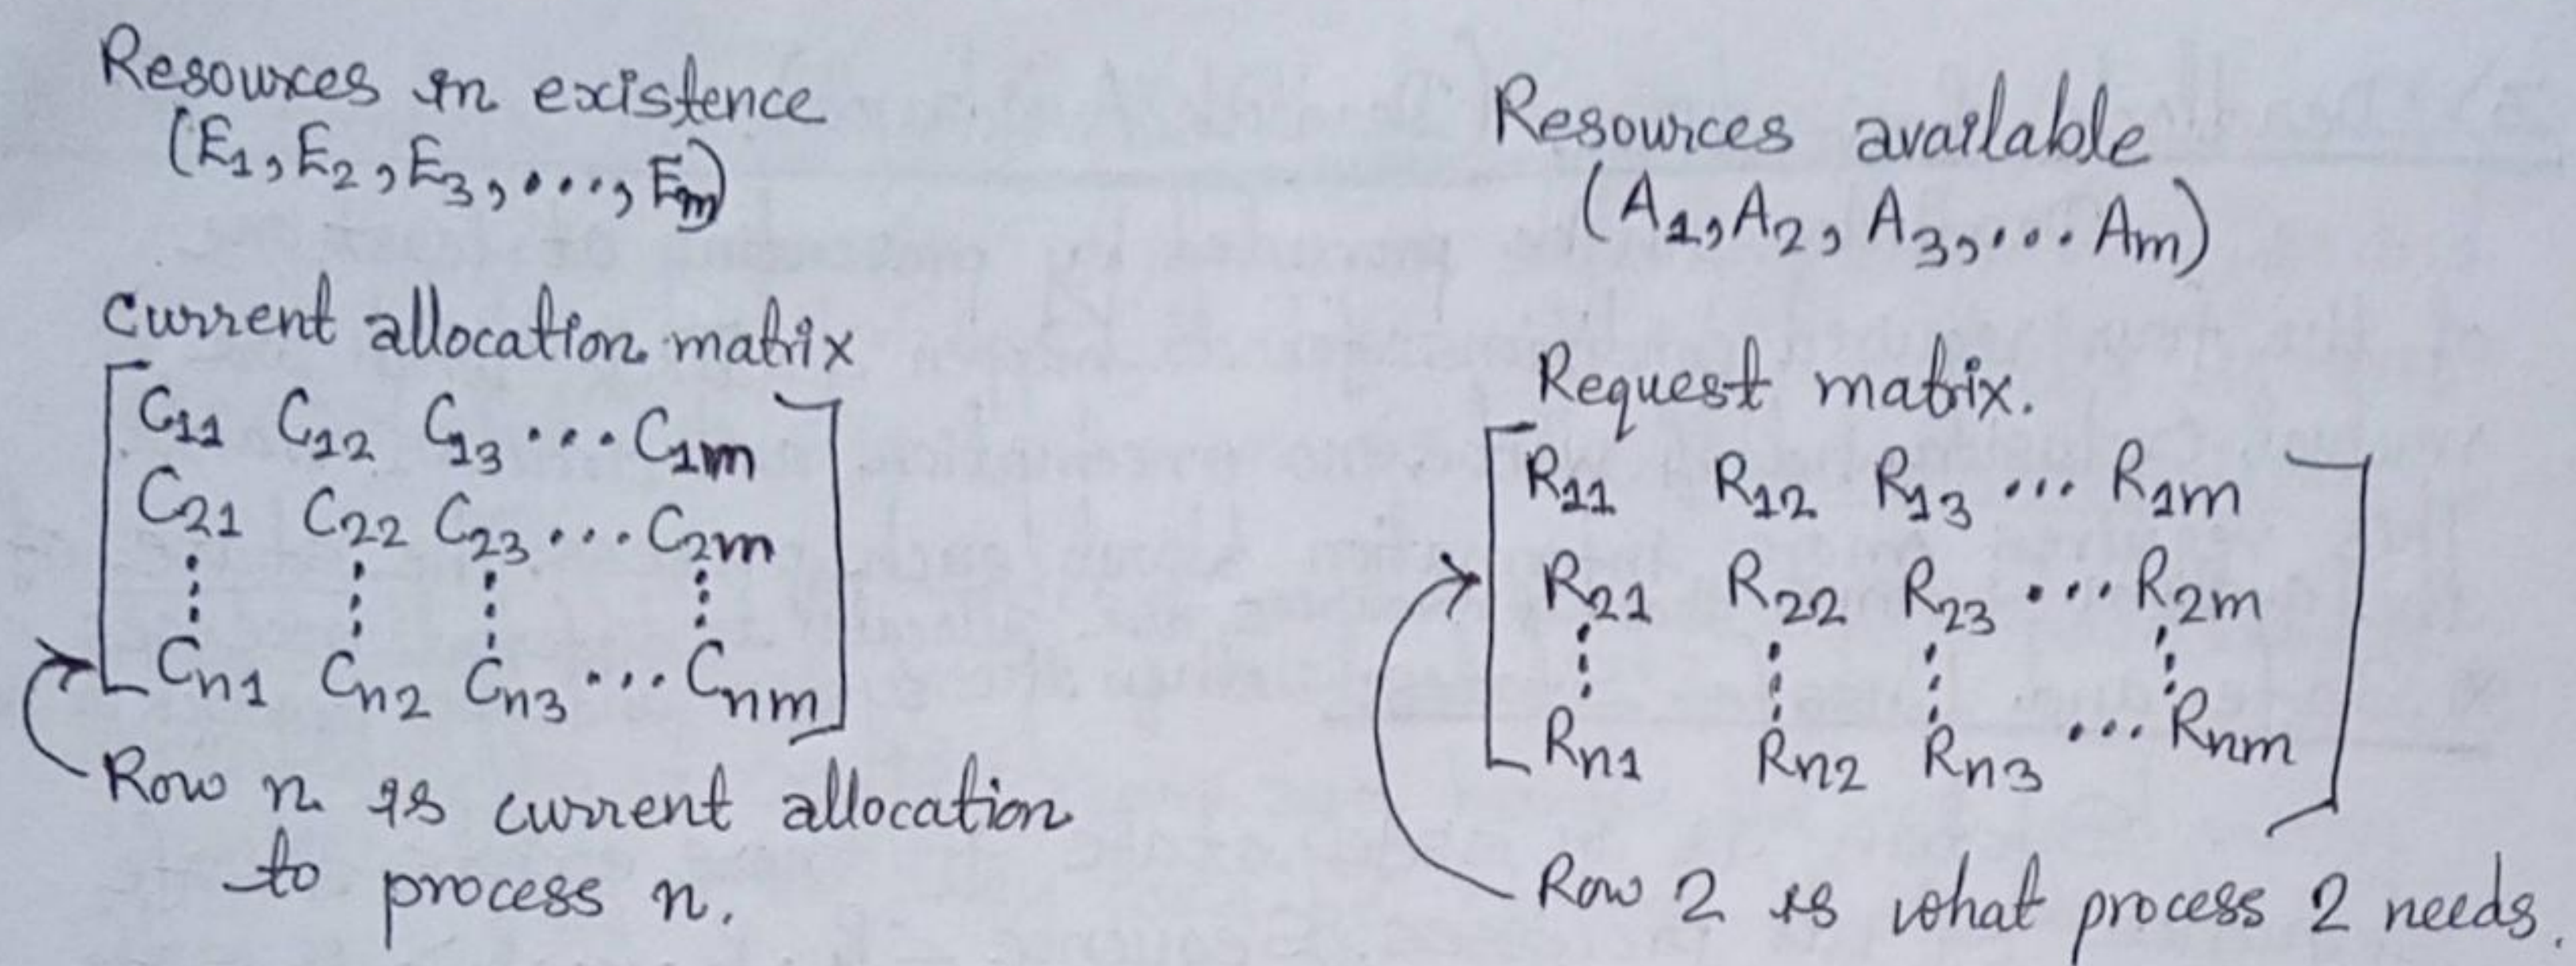 Resources in existence
(E1, E2, E3, ...., Em)
Current allocation matrix
C11 C12 C13 ... C1m
C21 C22 C23 ... C2m
Cn1 Cn2 Cn3 ... Cnm
Row n is current allocation
to process n.
Resources available
(A1, A2, A3, ... Am)
Request matrix.
R11 R12 R13 ... R1m
R21 R22 R23 ... R2m
Rn1 Rn2 Rn3 ... Rnm
Row 2 is what process 2 needs.